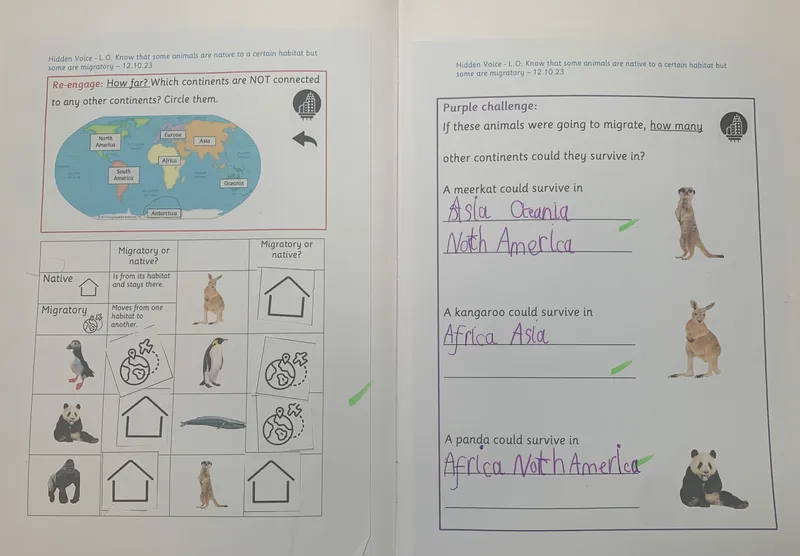 Hidden Voice - L.O. Know that some animals are native to a certain habitat but
some are migratory – 12.10.23
Re-engage: How far? Which continents are NOT connected
to any other continents? Circle them.
North
America
Europe
Asia
Africa
South
America
Oceania
Antarctica
Migratory or
native?
Migratory or
native?
Native
Is from its habitat
and stays there.
Migratory
Moves from one
habitat to
another.
Hidden Voice - L.O. Know that some animals are native to a certain habitat but
some are migratory – 12.10.23
Purple challenge:
If these animals were going to migrate, how many
other continents could they survive in?
A meerkat could survive in
Asia Oceania
Noth America
A kangaroo could survive in
Africa Asia
A panda could survive in
Africa Noth America